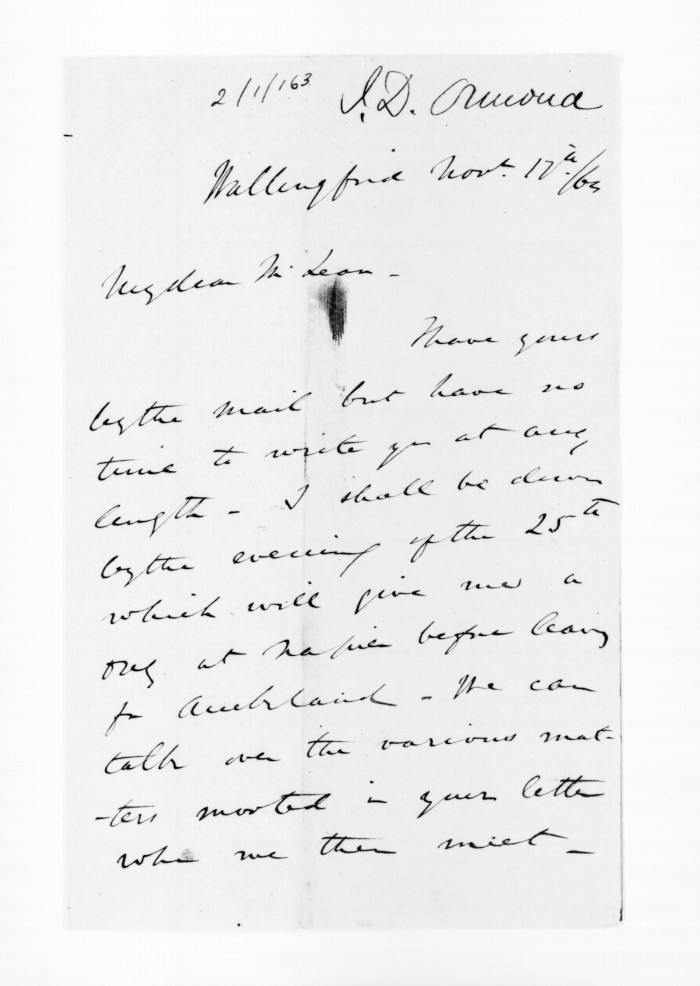 2/1/163
J. D. Ormond
Wallingford Novr. 17th /64
My dear McLean -
I have yours
by the mail but have no
time to write you at any
length - I shall be down
by the evening of the 25th
which will give me a
day at Napier before leaving
for Auckland - We can
talk over the various mat-
-ters mooted in your letter
when we then meet -